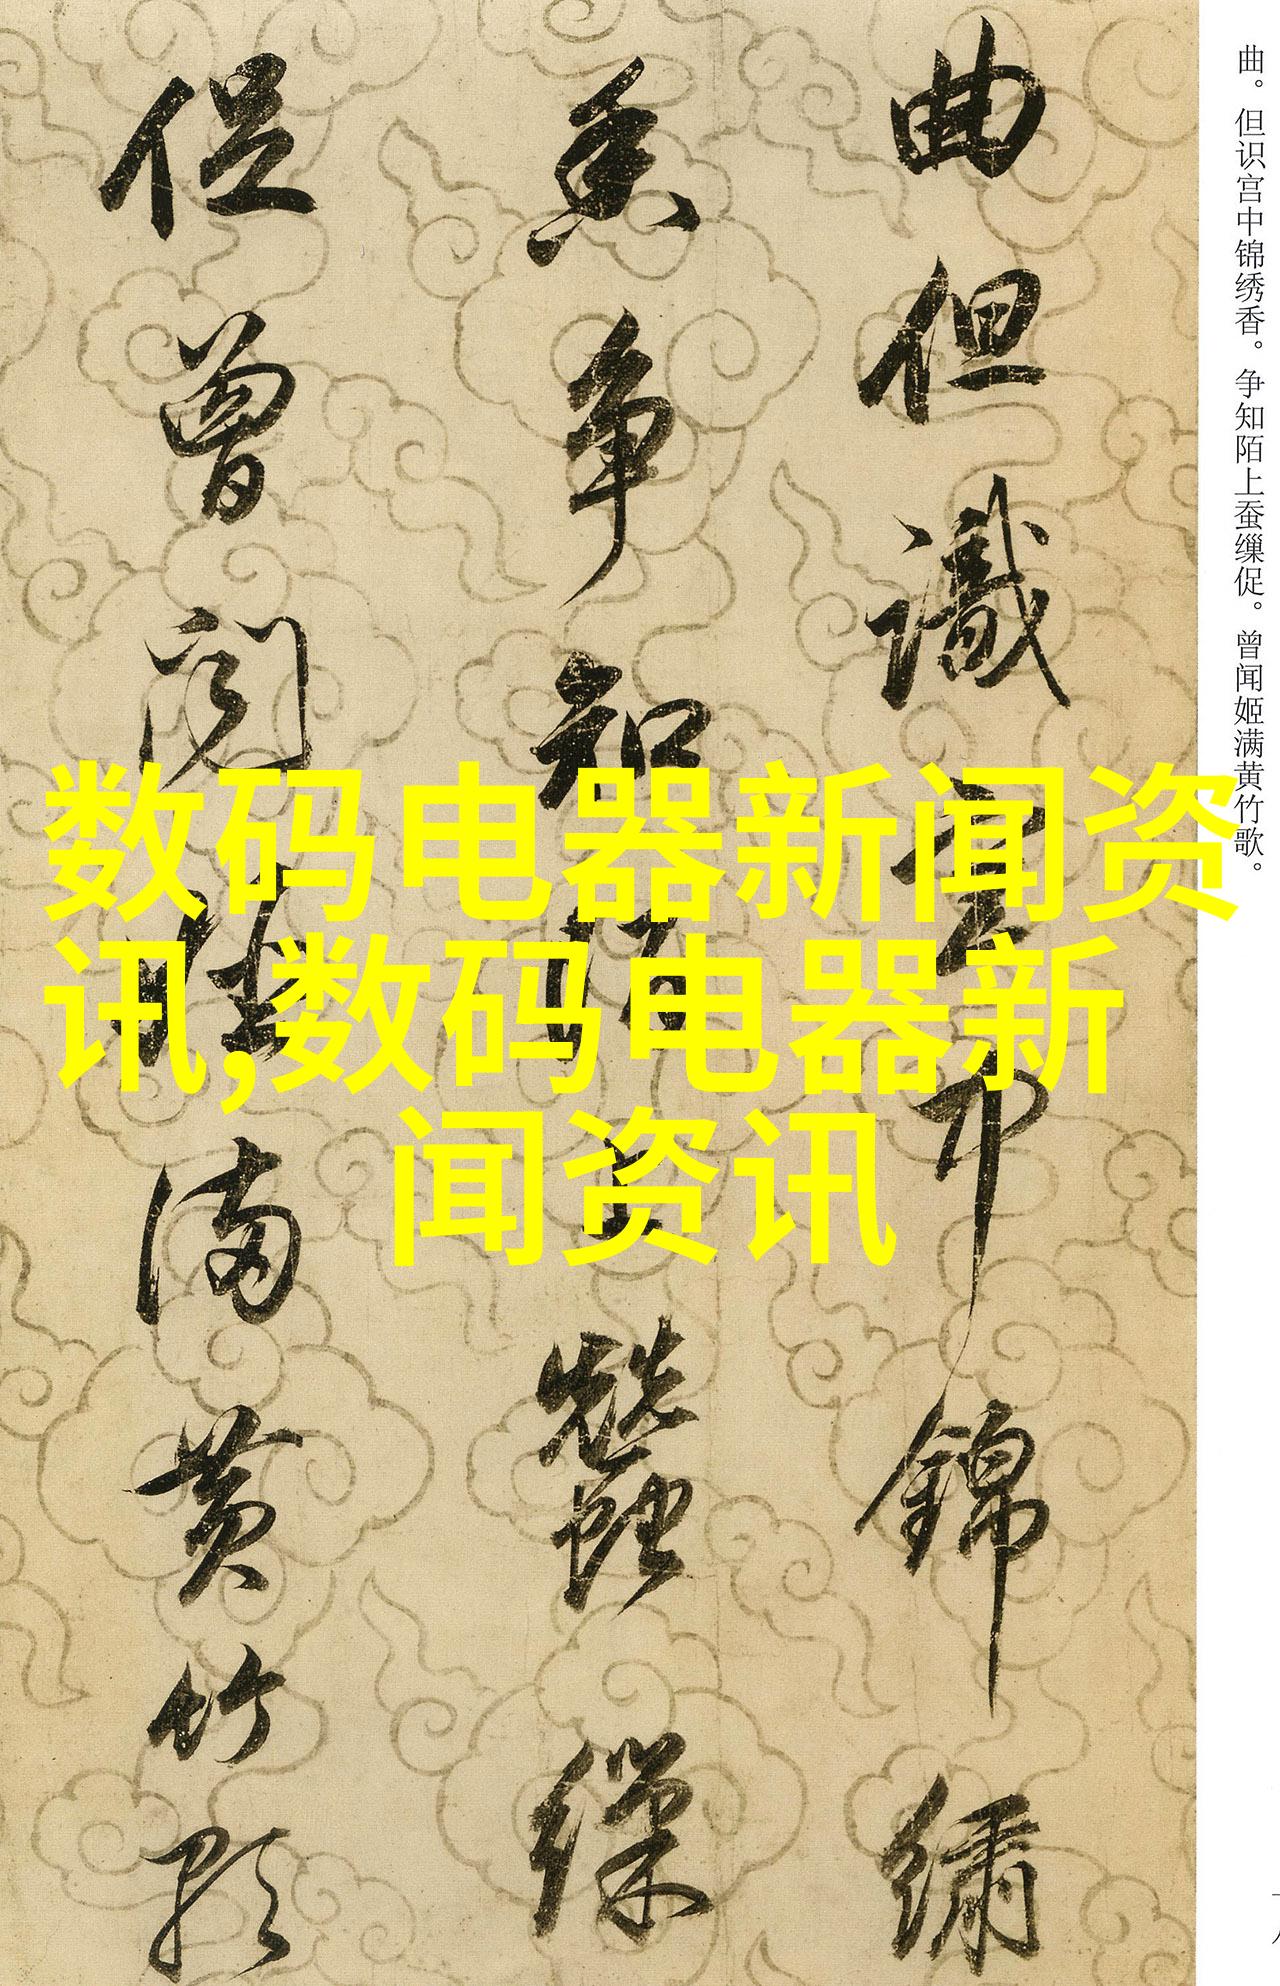 曲但識宮中錦繡
香争知陌上蠶繅
促曾闻姬满黄竹歌
曲。但识宫中锦绣香。争知陌上蚕缫促。曾闻姬满黄竹歌。
数码电器新闻资
讯,数码电器新
闻资讯